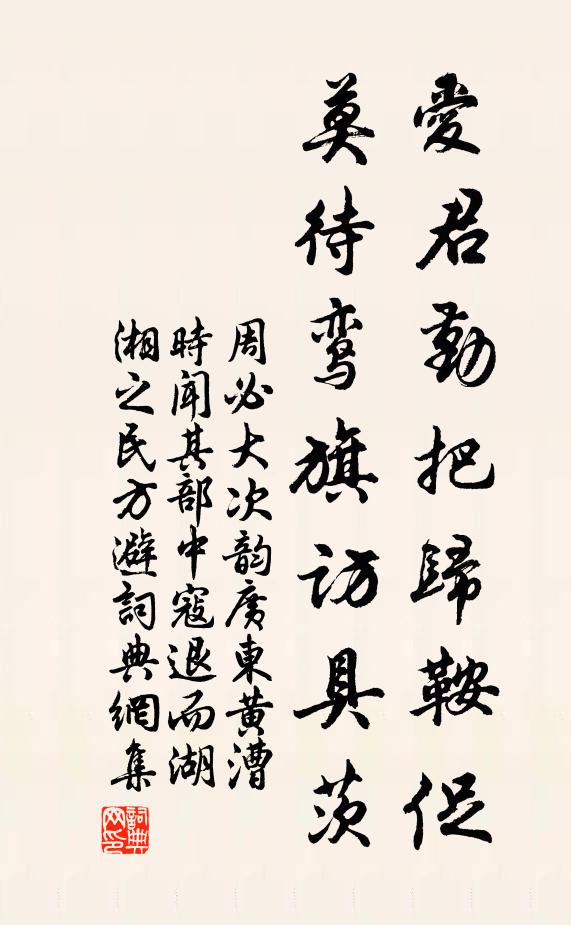 愛君勤把歸鞍促
莫待鸾旗訪具茨
周必大次韵廣東黄漕
時聞其部中寇退而湖
湘之民方避詞典網集
詞典网印